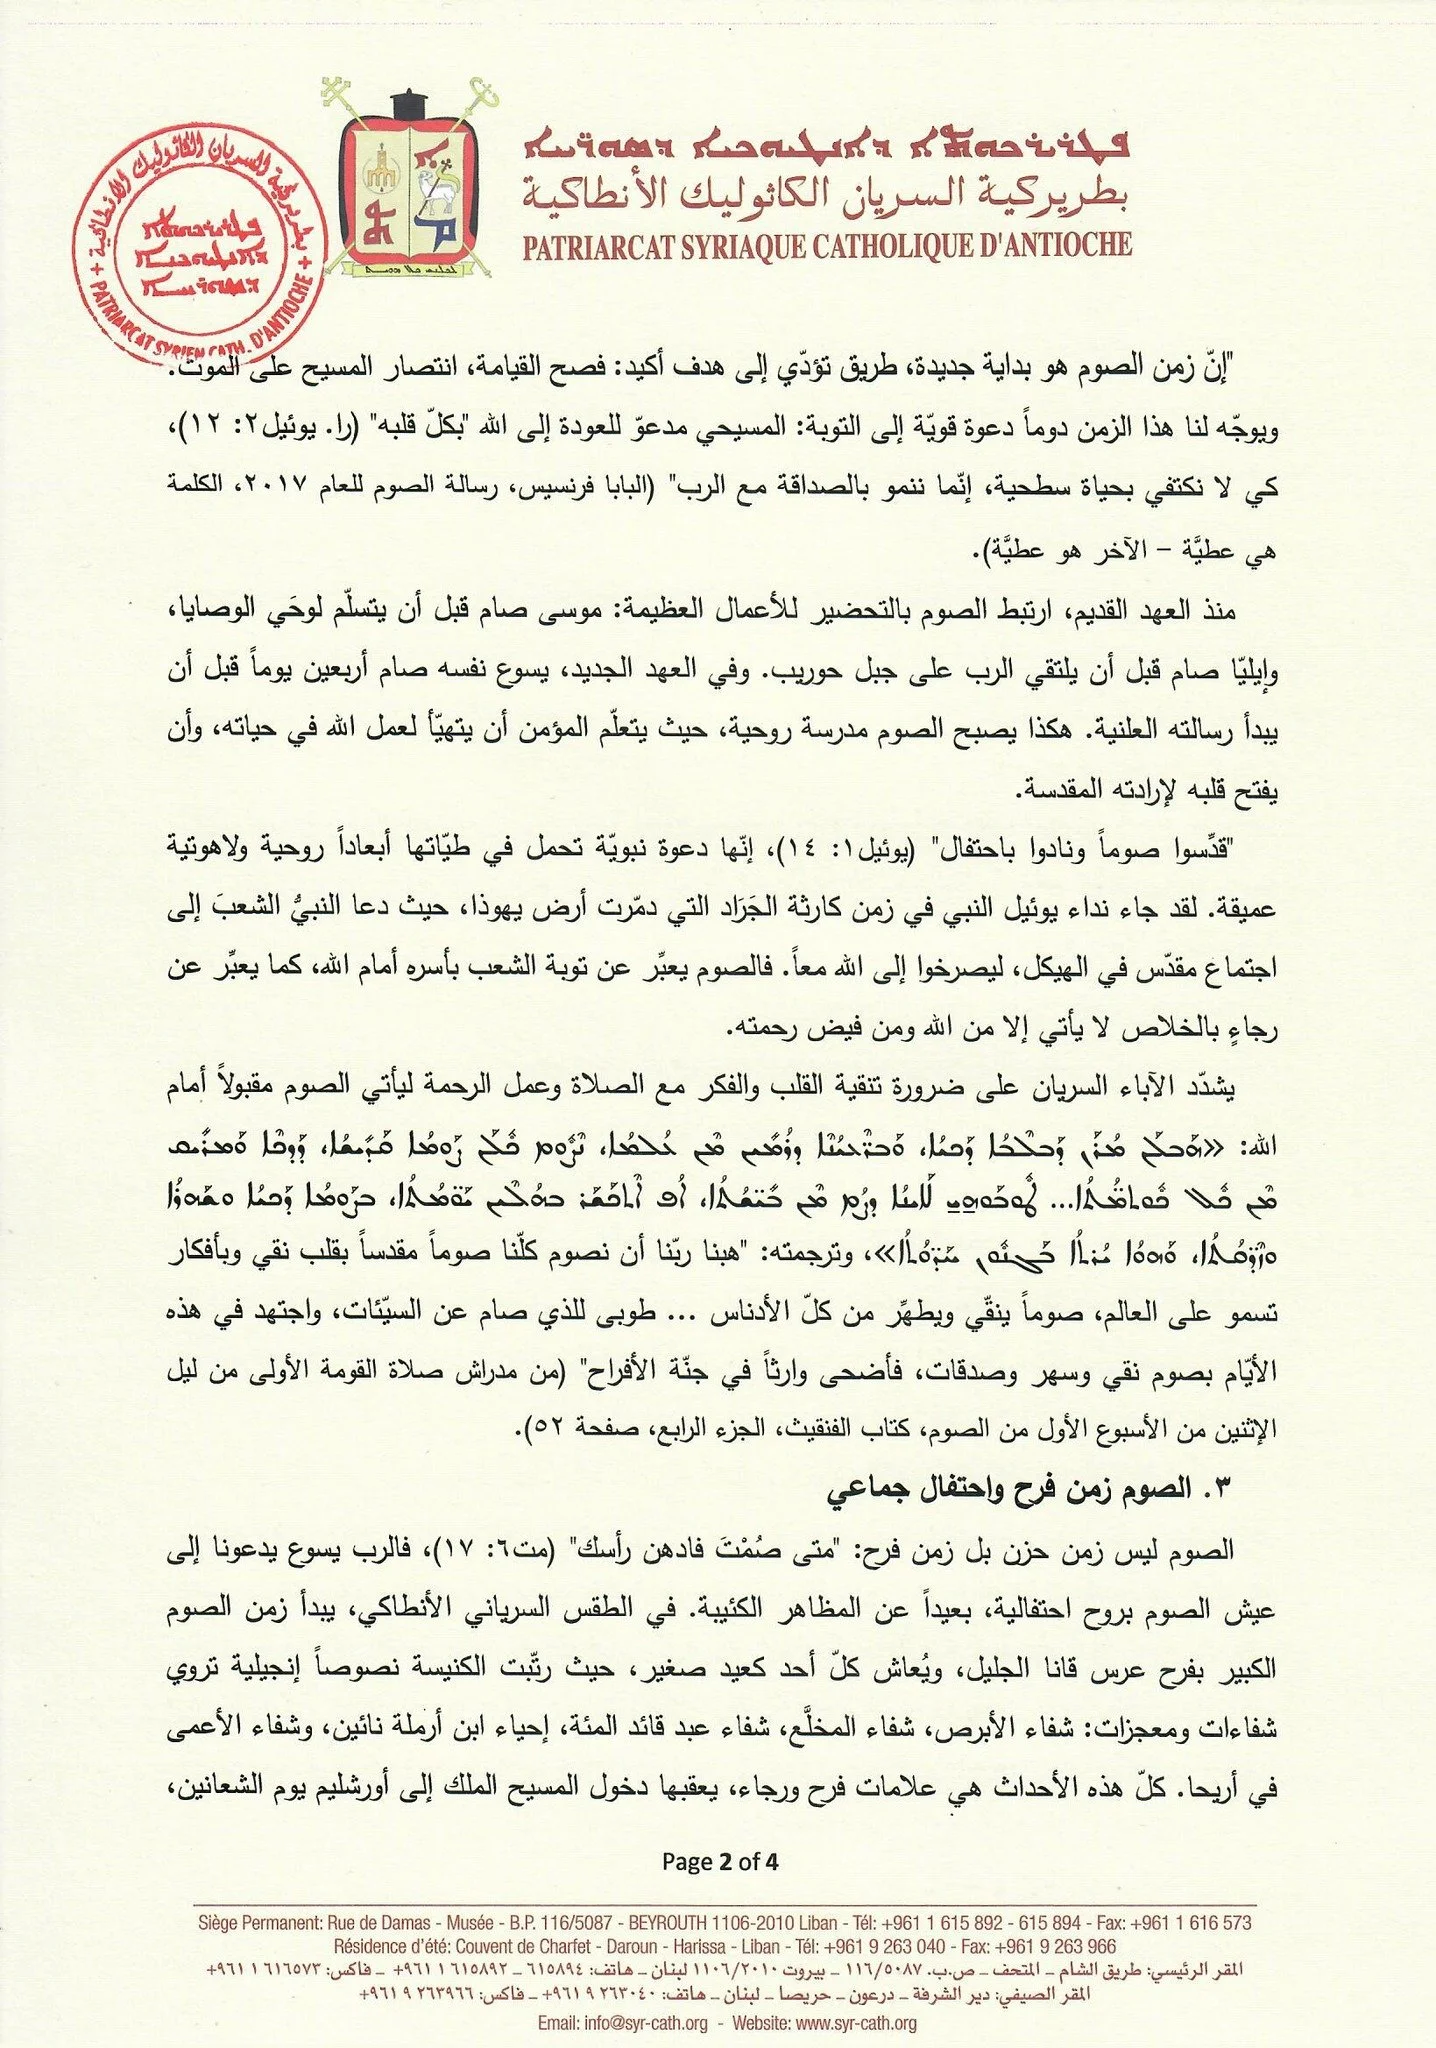 بطريركية السريان الكاثوليك الأنطاكية
PATRIARCAT SYRIAQUE CATHOLIQUE D'ANTIOCHE
بطريركية السريان الكاثوليك الانطاكية
PATRIARCAT SYRIEN CATH. D'ANTIOCHE
"إنّ زمن الصوم هو بداية جديدة، طريق تؤدّي إلى هدف أكيد: فصح القيامة، انتصار المسيح على الموت.
ويوجّه لنا هذا الزمن دوماً دعوة قويّة إلى التوبة: المسيحي مدعوّ للعودة إلى الله "بكلّ قلبه" (را. يوئيل٢: ١٢)،
كي لا نكتفي بحياة سطحية، إنّما ننمو بالصداقة مع الرب" (البابا فرنسيس، رسالة الصوم للعام ٢٠١٧، الكلمة
هي عطيَّة – الآخر هو عطيَّة).
منذ العهد القديم، ارتبط الصوم بالتحضير للأعمال العظيمة: موسى صام قبل أن يتسلّم لوحَي الوصايا،
وإيليّا صام قبل أن يلتقي الرب على جبل حوريب. وفي العهد الجديد، يسوع نفسه صام أربعين يوماً قبل أن
يبدأ رسالته العلنية. هكذا يصبح الصوم مدرسة روحية، حيث يتعلّم المؤمن أن يتهيّأ لعمل الله في حياته، وأن
يفتح قلبه لإرادته المقدسة.
"قدِّسوا صوماً ونادوا باحتفال" (يوئيل١: ١٤)، إنّها دعوة نبويّة تحمل في طيّاتها أبعاداً روحية ولاهوتية
عميقة. لقد جاء نداء يوئيل النبي في زمن كارثة الجَرَاد التي دمّرت أرض يهوذا، حيث دعا النبيُّ الشعبَ إلى
اجتماع مقدّس في الهيكل، ليصرخوا إلى الله معاً. فالصوم يعبِّر عن توبة الشعب بأسره أمام الله، كما يعبِّر عن
رجاءٍ بالخلاص لا يأتي إلا من الله ومن فيض رحمته.
يشدّد الآباء السريان على ضرورة تنقية القلب والفكر مع الصلاة وعمل الرحمة ليأتي الصوم مقبولاً أمام
الله:
وترجمته: "هبنا ربّنا أن نصوم كلّنا صوماً مقدساً بقلب نقي وبأفكار
تسمو على العالم، صوماً ينقّي ويطهِّر من كلّ الأدناس ... طوبى للذي صام عن السيّئات، واجتهد في هذه
الأيّام بصوم نقي وسهر وصدقات، فأضحى وارثاً في جنّة الأفراح" (من مدراش صلاة القومة الأولى من ليل
الإثنين من الأسبوع الأول من الصوم، كتاب الفنقيث، الجزء الرابع، صفحة ٥٢).
٣. الصوم زمن فرح واحتفال جماعي
الصوم ليس زمن حزن بل زمن فرح: "متى صُمْتَ فادهن رأسك" (مت٦: ١٧)، فالرب يسوع يدعونا إلى
عيش الصوم بروح احتفالية، بعيداً عن المظاهر الكئيبة. في الطقس السرياني الأنطاكي، يبدأ زمن الصوم
الكبير بفرح عرس قانا الجليل، ويُعاش كلّ أحد كعيد صغير، حيث رتّبت الكنيسة نصوصاً إنجيلية تروي
شفاءات ومعجزات: شفاء الأبرص، شفاء المخلَّع، شفاء عبد قائد المئة، إحياء ابن أرملة نائين، وشفاء الأعمى
في أريحا. كلّ هذه الأحداث هي علامات فرح ورجاء، يعقبها دخول المسيح الملك إلى أورشليم يوم الشعانين،
Page 2 of 4
Siège Permanent: Rue de Damas - Musée - B.P. 116/5087 - BEYROUTH 1106-2010 Liban - Tél: +961 1 615 892 - 615 894 - Fax: +961 1 616 573
Résidence d'été: Couvent de Charfet - Daroun - Harissa - Liban - Tél: +961 9 263 040 - Fax: +961 9 263 966
المقر الرئيسي: طريق الشام – المتحف – ص.ب. ١١٦/٥٠٨٧ – بيروت ١١٠٦/٢٠١٠ لبنان – هاتف: ٦١٥٨٩٤ – ٦١٥٨٩٢ ١ ٩٦١+ – فاكس: ٦١٦٥٧٣ ١ ٩٦١+
المقر الصيفي: دير الشرفة – درعون – حريصا – لبنان – هاتف: ٢٦٣٠٤٠ ٩ ٩٦١+ – فاكس: ٢٦٣٩٦٦ ٩ ٩٦١+
Email: info@syr-cath.org - Website: www.syr-cath.org